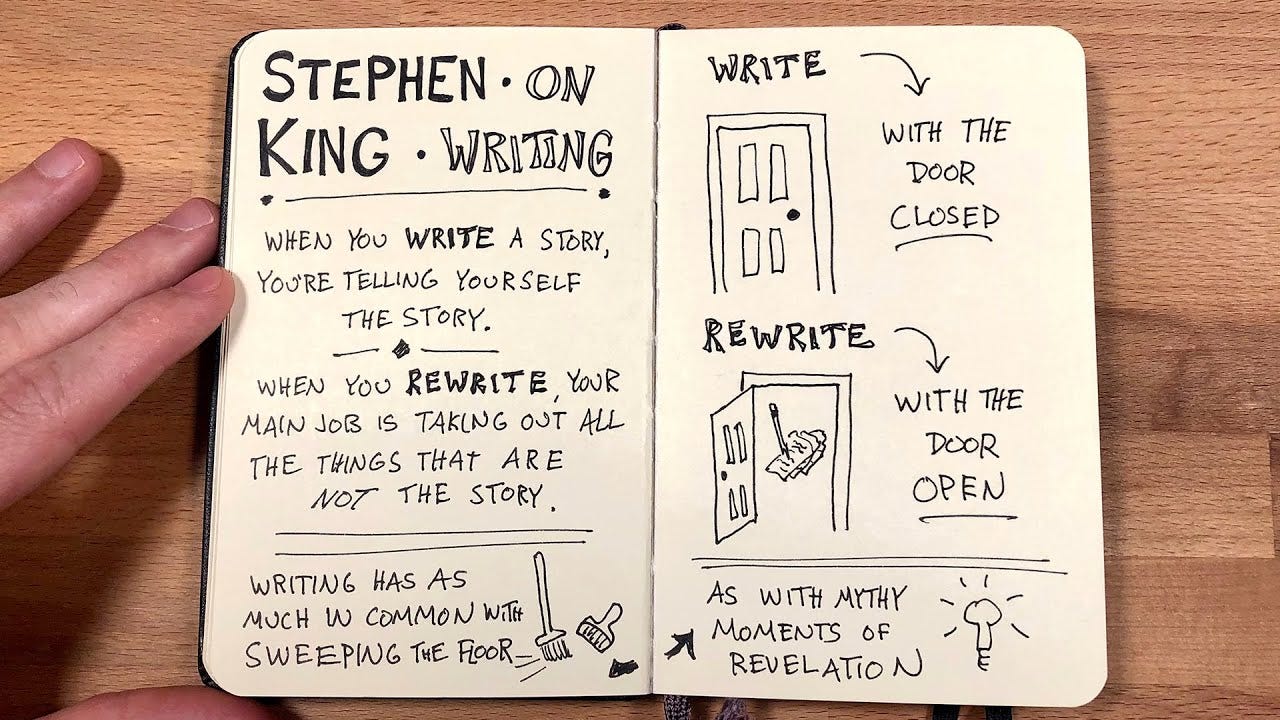 STEPHEN · ON
KING · WRITING
WHEN YOU WRITE A STORY,
YOU'RE TELLING YOURSELF
THE STORY.
WHEN YOU REWRITE, YOUR
MAIN JOB IS TAKING OUT ALL
THE THINGS THAT ARE
NOT THE STORY.
WRITING HAS AS
MUCH IN COMMON WITH
SWEEPING THE FLOOR
WRITE
WITH THE
DOOR
CLOSED
REWRITE
WITH THE
DOOR
OPEN
AS WITH MYTHY
MOMENTS OF
REVELATION